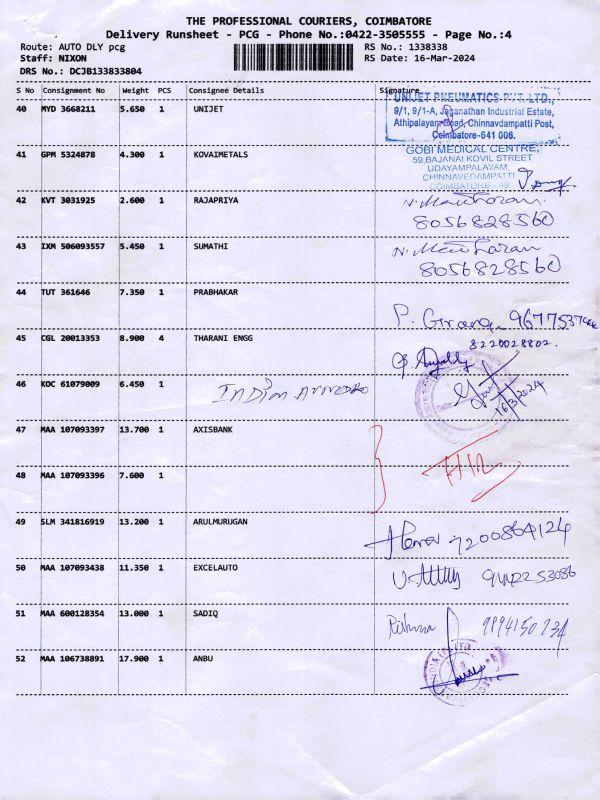 THE PROFESSIONAL COURIERS, COIMBATORE
Delivery Runsheet - PCG - Phone No.:0422-3505555 - Page No.:4
Route: AUTO DLY pcg
RS No.: 1338338
Staff: NIXON
RS Date: 16-Mar-2024
DRS No.: DCJB133833804
S No Consignment No Weight PCS Consignee Details Signature
40 MYD 3668211 5.650 1 UNIJET
UNIJET PNEUMATICS PVT. LTD.,
9/1, 9/1-A, Jeganathan Industrial Estate,
Athipalayam Road, Chinnavedampatti Post,
Coimbatore-641 006.
41 GPM 5324878 4.300 1 KOVAIMETALS
GOBI MEDICAL CENTRE,
59,BAJANAI KOVIL STREET
UDAYAMPALAYAM,
CHINNAVEDAMPATTI
COIMBATORE - 49
42 KVT 3031925 2.600 1 RAJAPRIYA
8056828560
43 IXM 506093557 5.450 1 SUMATHI
8056828560
44 TUT 361646 7.350 1 PRABHAKAR
45 CGL 20013353 8.900 4 THARANI ENGG
8220028802.
46 KOC 61079009 6.450 1
16/3/2024
47 MAA 107093397 13.700 1 AXISBANK
48 MAA 107093396 7.600 1
49 SLM 341816919 13.200 1 ARULMURUGAN
7200864124
50 MAA 107093438 11.350 1 EXCELAUTO
9442253086
51 MAA 600128354 13.000 1 SADIQ
52 MAA 106738891 17.900 1 ANBU